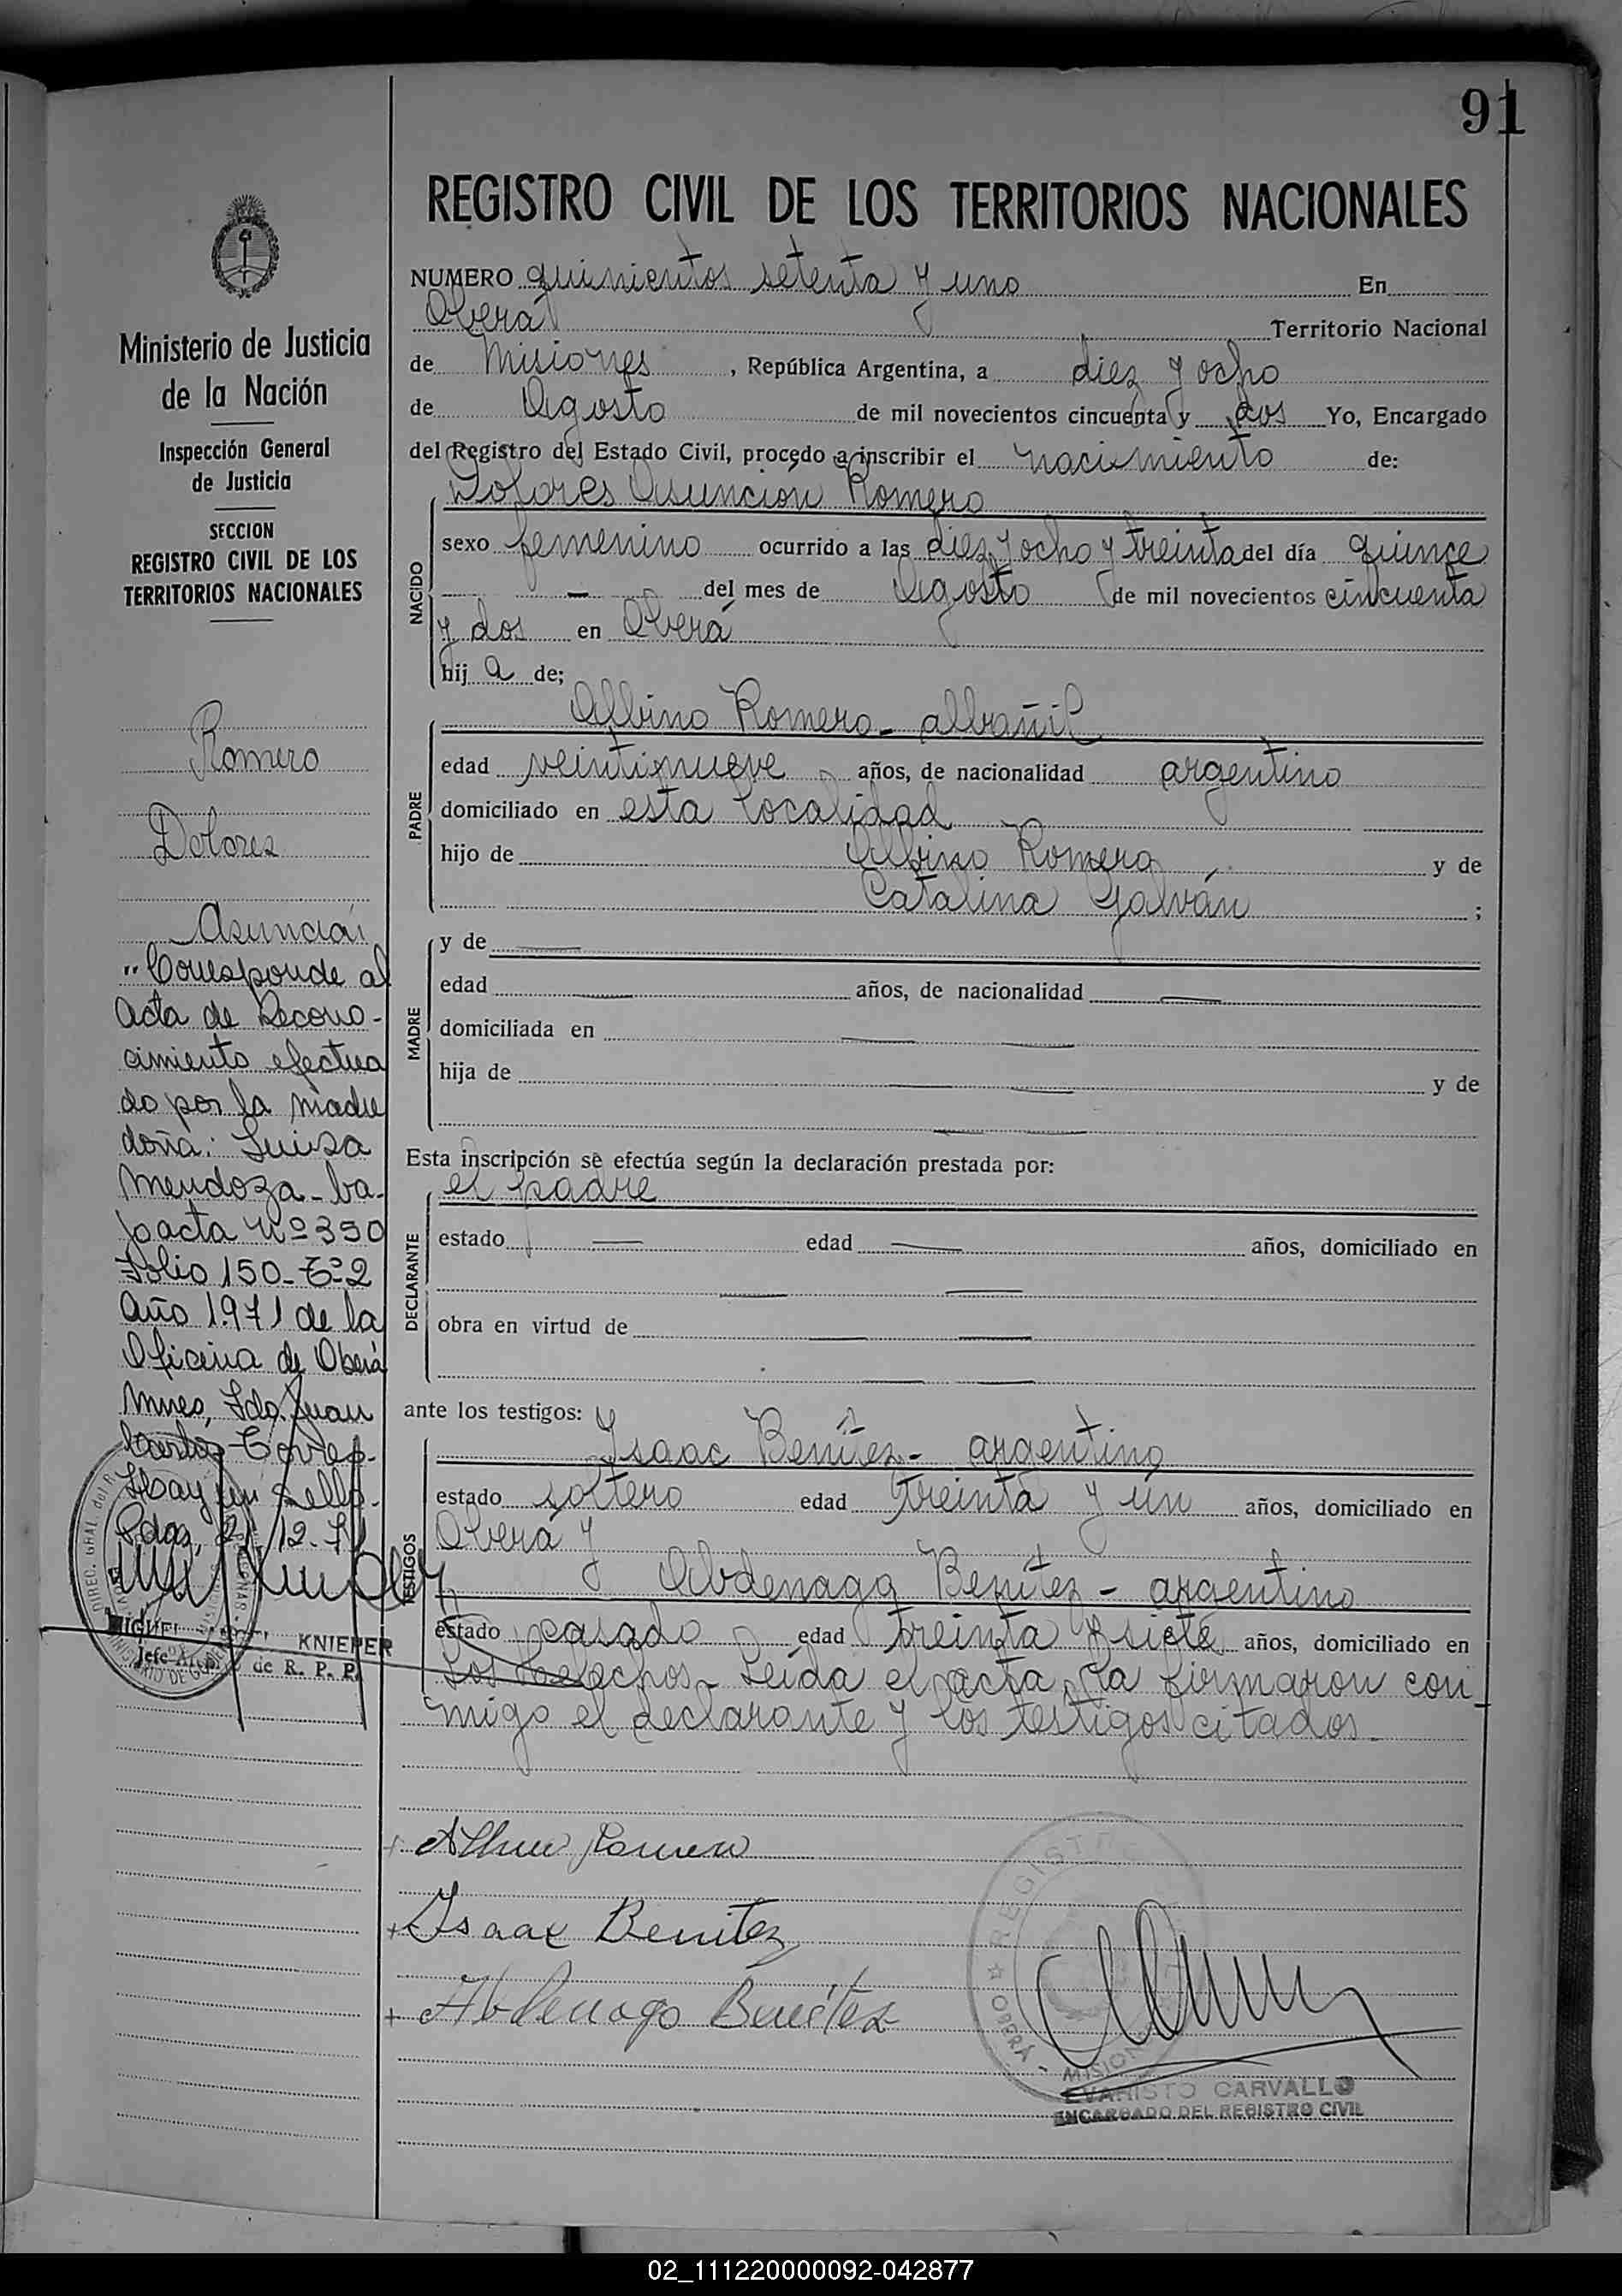 91
REGISTRO CIVIL DE LOS TERRITORIOS NACIONALES
Ministerio de Justicia
de la Nación
Inspección General
de Justicia
SECCION
REGISTRO CIVIL DE LOS
TERRITORIOS NACIONALES
Romero
Dolores
Asunción
"Corresponde al
acta de Recono-
cimiento efectua
do por la madre
doña: Luisa
Mendoza - ba-
jo acta Nº 350
Folio 150 - Tº 2
Año 1.971 de la
Oficina de Oberá
Mnes, Fdo. Juan
Carlos Torres.
Hay un sello.
Pdas, 21.12.71
MIGUEL KNIEPER
Jefe de R. P. P.
NUMERO quinientos setenta y uno En
Oberá Territorio Nacional
de Misiones, República Argentina, a diez y ocho
de Agosto de mil novecientos cincuenta y dos Yo, Encargado
del Registro del Estado Civil, procedo a inscribir el nacimiento de:
NACIDO
Dolores Asunción Romero
sexo femenino ocurrido a las diez y ocho y treinta del día quince
— del mes de Agosto de mil novecientos cincuenta
y dos en Oberá
hij a de;
PADRE
Albino Romero - albañil
edad veintinueve años, de nacionalidad argentino
domiciliado en esta localidad
hijo de Albino Romero y de
Catalina Galván ;
MADRE
y de —
edad — años, de nacionalidad —
domiciliada en — —
hija de — — y de
— —
Esta inscripción se efectúa según la declaración prestada por:
DECLARANTE
el padre
estado — edad — años, domiciliado en
— —
obra en virtud de — —
— —
ante los testigos:
TESTIGOS
Isaac Benítez - argentino
estado soltero edad treinta y un años, domiciliado en
Oberá y
Abdenago Benítez - argentino
estado casado edad treinta y siete años, domiciliado en
Los Helechos. Leída el acta, la firmaron con-
migo el declarante y los testigos citados.
+ Albino Romero
+ Isaac Benitez
+ Abdenago Benítez
REGISTRO
OBERÁ - MISIONES
EVARISTO CARVALLO
ENCARGADO DEL REGISTRO CIVIL
02_111220000092-042877